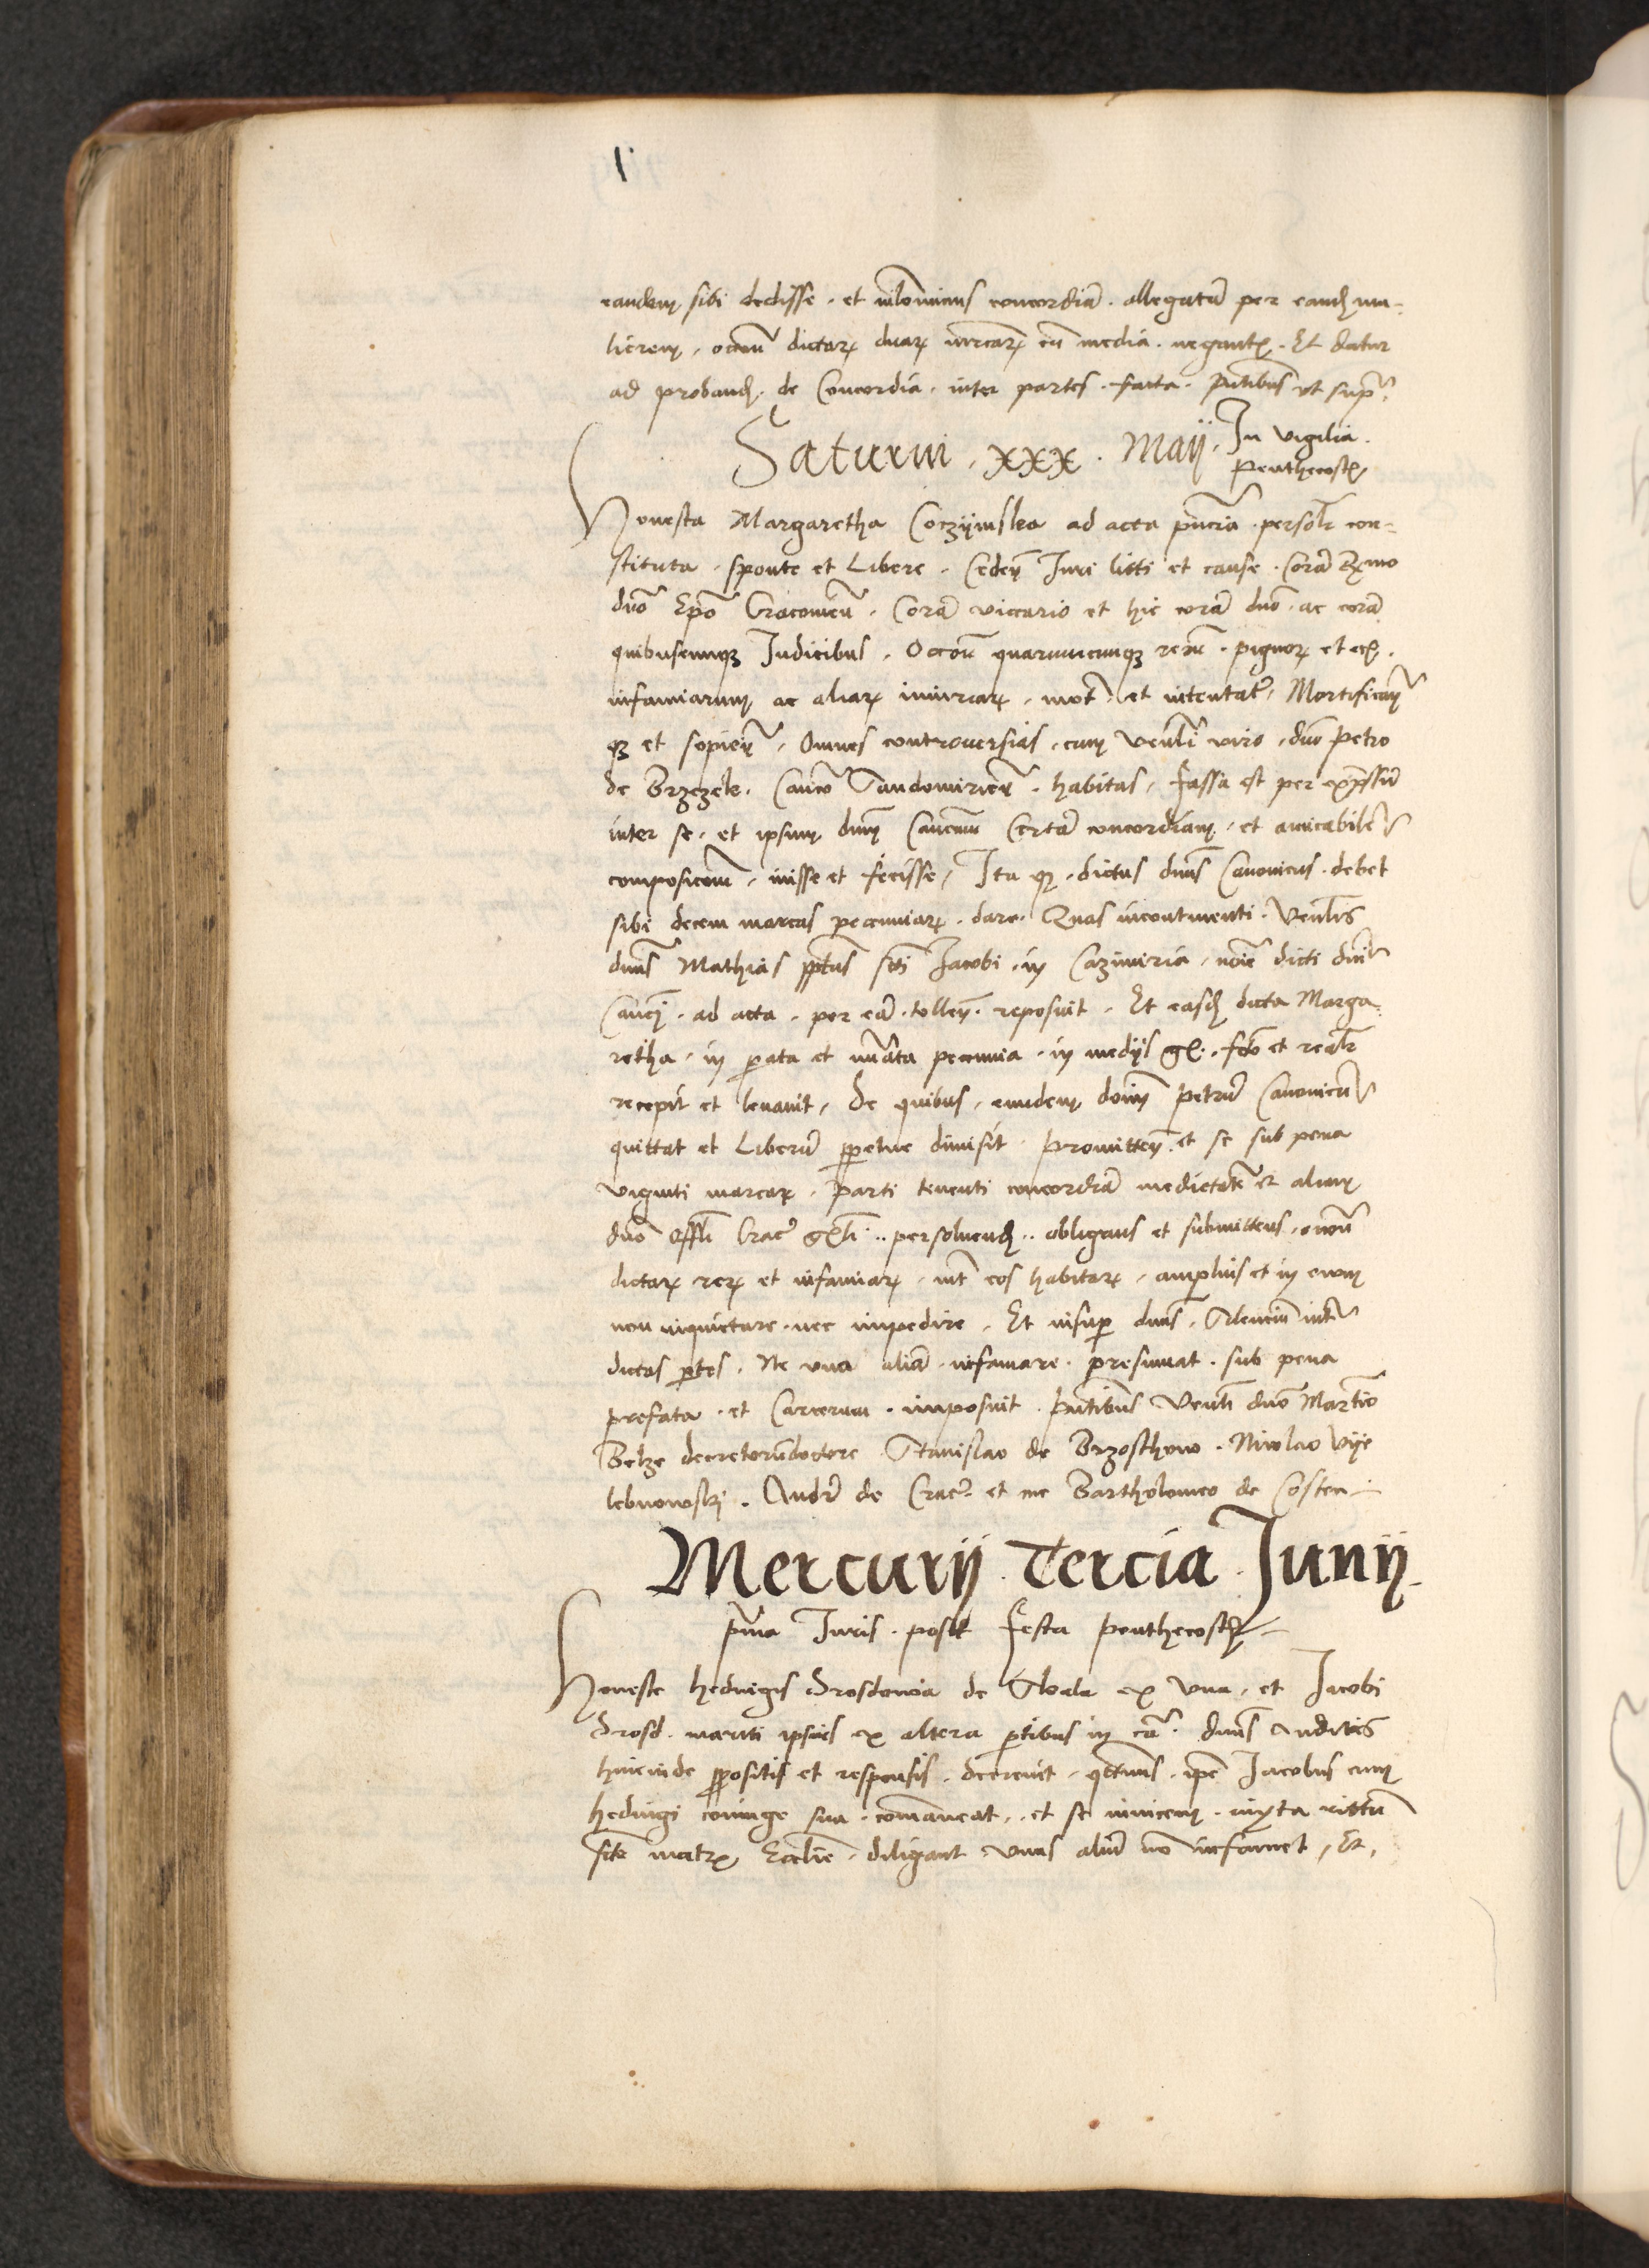 eandem sibi dedisse. et nihilominus concordiã. allegatã per eand mu-
lierem, occõne dictarꝝ duarꝝ mrcarꝝ cũ media. negantẽ. Et datur
ad proband. de Concordia. inter partes. facta. Pñtibus ut supra
Saturni. xxx. Maij. In vigilia.
Penthecosteꝭ
Honesta Margaretha Coczijnska ad acta pñcia. personalr con-
stituta. sponte et Libere. Cedeñ Iuri litti et cause. Corã Rmo
dño Epõ Cracovieñ. Corã viccario et hic corã dño. ac corã
quibuscunqꝫ Iudicibus. Occõne quarumcunqꝫ rerũ. pignorꝝ et ecꝫ.
infamiarum ac aliarꝝ iniuriarꝝ. mot. et intentatꝝ. Mortificañ
qꝫ et sopieñ. Omnes controversias. cum Venli viro. dño Petro
de Brzezek. Canco Sandomirieñ. habitas. Fassa est per expssum
inter se. et ipsum dnm Cancum Certã concordiam. et amicabile
composicõem. inisse et fecisse. Ita qꝫ. dictus dnus Canonicus. debet
sibi decem marcas pecuniarꝝ. dare. Quas incontinenti. Venlis
dnus Mathias pptus scti Jacobi. in Cazimiria. noie dicti dni
Canci. ad acta. per eã. tolleñ. reposuit. Et easd dicta Marga
retha. in parata et nuãta pecunia. in medijs gr. fcto et realr
recepit et levavit. De quibus. eundem dnm Petrũ Canonicũ
quittat et Liberũ ppetue dimisit. Promitteñ. et se sub pena
viginti marcarꝝ. Parti tenenti concordiã medietatẽ et aliam
dño Offli Crac. persolvend.. obligans et submittens. occõne
dictarꝝ rerꝝ et infamiarꝝ. int eos habitarꝝ. amplius et in evum
non inquietare. nec impedire. Et insup dnus. Silencium int
dictas ptes. Ne una aliã. infamare. presumat. sub pena
prefata. et Carcerum. imposuit. Pñtibus Venli dño Martino
Belze decretorũ doctore Stanislao de Brzosthow. Nicolao Vije
lebnowskj. Andr de Crac. et me Bartholomeo de Costen
Mercurij. Tercia. Junij.
Pma Iuris. post festa Penthecosteꝭ
Honeste Hedvigis Drosdowa de Skala ex una. et Jacobi
Drosd. mariti ipsius ex altera ptibus in cã. dnus auditis
hincinde ppositis et responsis. decrevit. qtenus. ipe Jacobus cum
Hedvigi coniuge sua. comaneat.. et se invicem. iuxta rittũ
scte matrꝭ Ecclie. diligant. unus aliũ nõ infamet. Et.